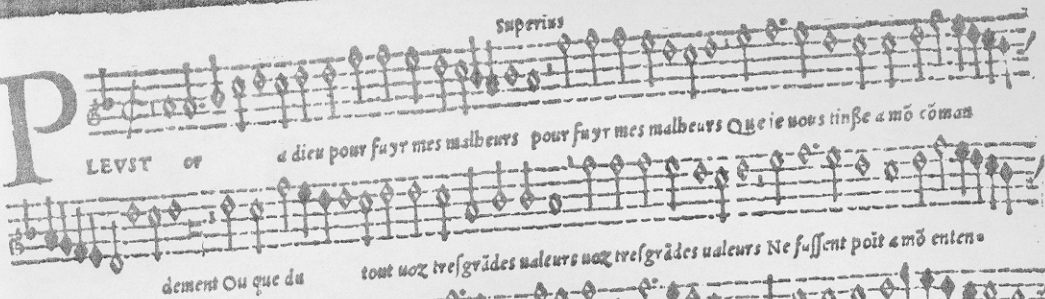 Superius
PLEVST or a dieu pour fuyr mes malheurs pour fuyr mes malheurs Que ie uous tinße a mõ cõman
dement Ou que du tout uoz tresgrãdes ualeurs uoz tresgrãdes ualeurs Ne fussent poit a mõ enten=